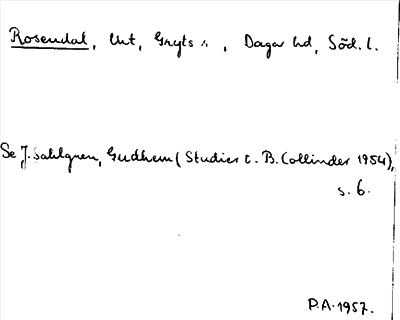 Rosendal, Unt, Gryts sn, Daga hd, Söd. l.
Se J. Sahlgren, Gudhem (Studier t. B. Collinder 1954),
s. 6.
P.A. 1957.